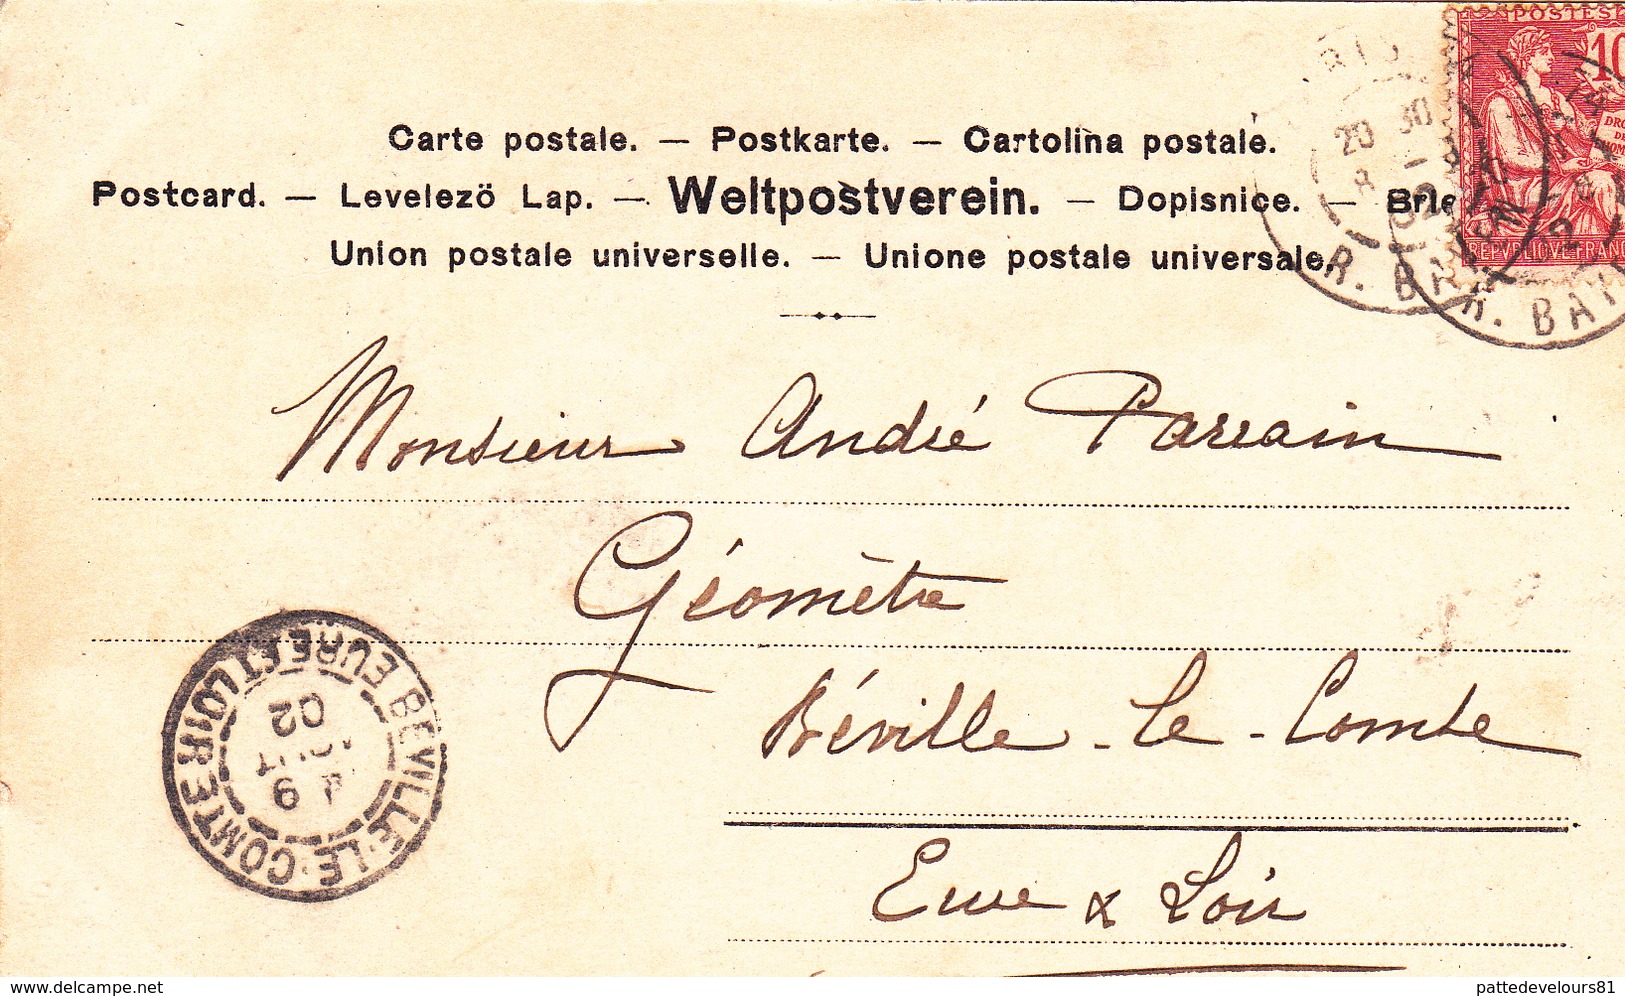 POSTES
10
REPVBLIQVE FRANC
Carte postale. — Postkarte. — Cartolina postale.
Postcard. — Levelező Lap. — Weltpostverein. — Dopisnice. — Brie
Union postale universelle. — Unione postale universale.
20 30
R. BA
R. BA
Monsieur André Parrain
Géomètre
Béville-le-Comte
Eure & Loir
BEVILLE-LE-COMTE
EURE ET LOIRE
9
02
www.delcampe.net
pattedevelours81